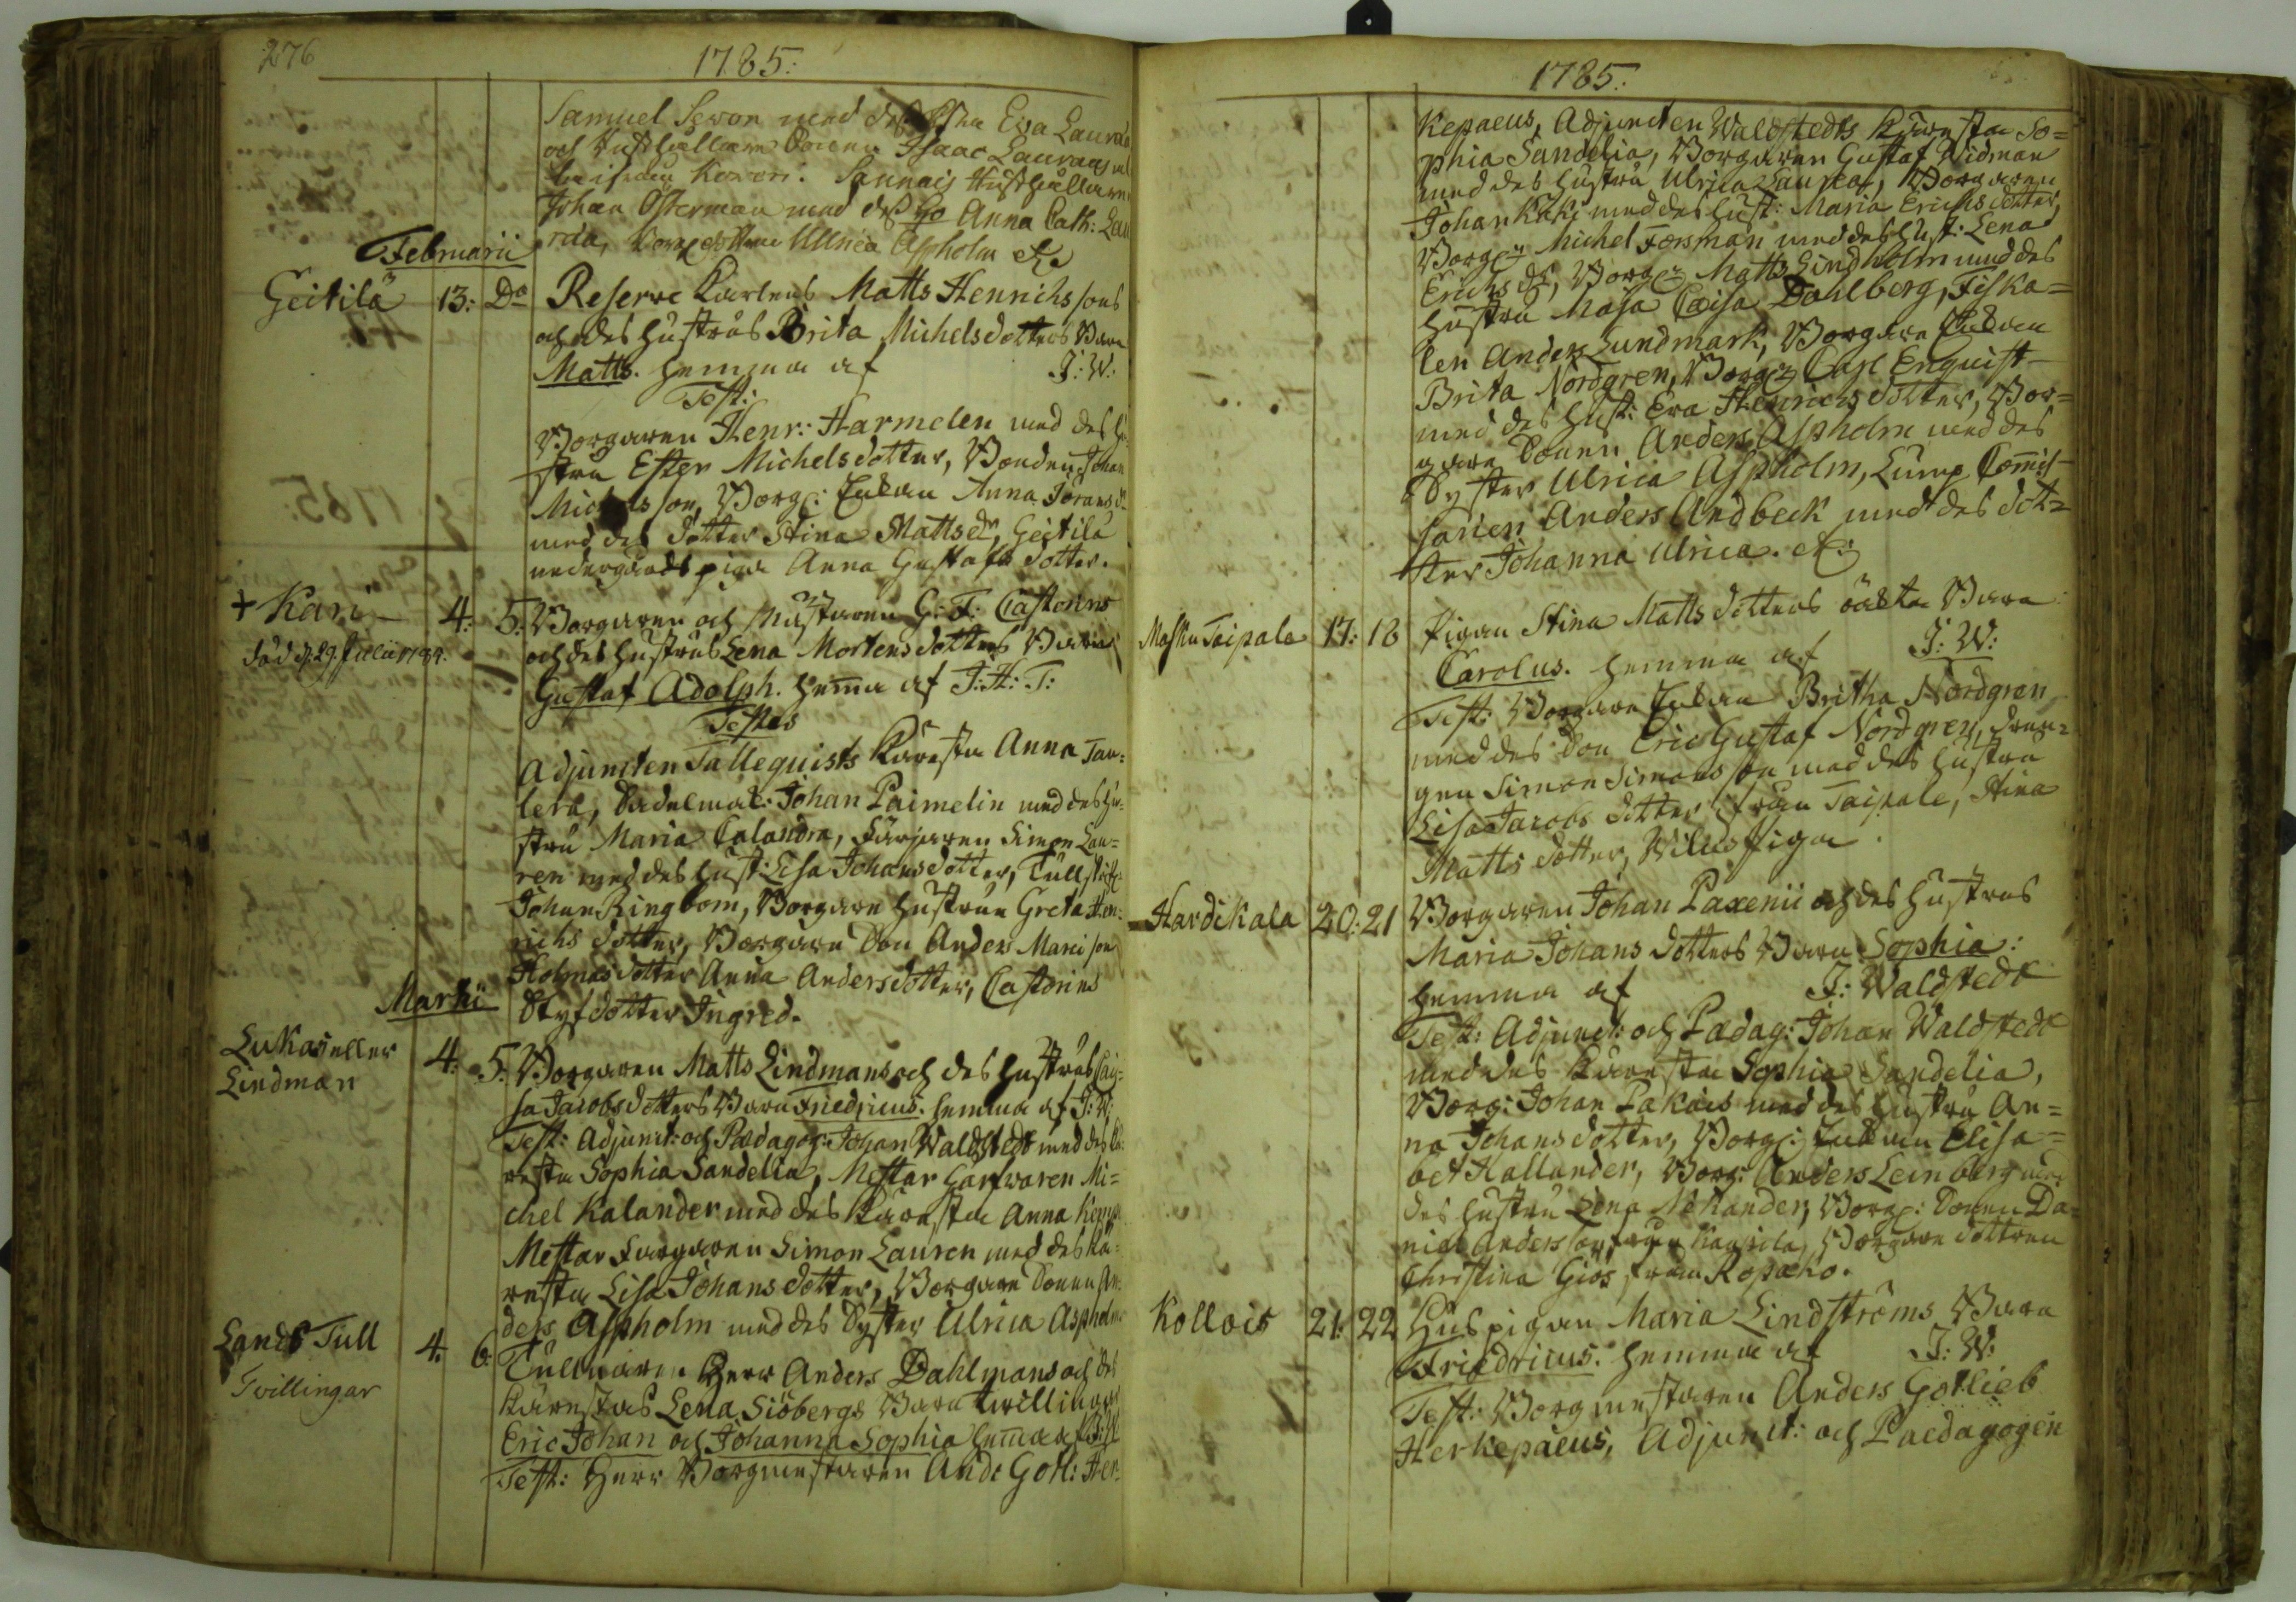 276
1785:
Samuel Sevon med des Eva Laurœa
och Hushållare Sonen Isaac Lauraeus
Korori. Sannäis Hushållaren
Johan Österman med des Anna Cath: Lau
rœa, Ullrica Aspholm etc
Februarii
Geitilä 13: Do Reserve Karlens Matts Henrichssons
och des hustrus Brita Michelsdotters Barn
Matts. hemma af J: W:
Test:
Borgaren Henr: Harmelen med des hu
stru Ester Michelsdotter, Bonden Johan
Michelsson, Borg: Enkan Anna Jöransd:
med des dotter Stina Mattsdr, Geitilä
nedergårds piga Anna Gustafs dotter.
+ Kari 4: 5: Borgaren och Mästaren G: F: Castorins
död d. 29. Julii 1789.
och des hustrus Lena Mortensdotters Barn
Gustaf Adolph. hemma af J: H: T:
Testes
Adjuncten Tallequists Käresta Anna Tau=
lera, Sadelmak: Johan Paimelin med des hu=
stru Maria Calandra, Färjaren Simon Lau=
ren med des hust: Lisa Johansdotter, Tull
Johan Ringbom, Borgare hustrun Greta Hen=
richs dotter, Borgare Son Anders Marcisson
Holmas dotter Anna Andersdotter, Castorins
Styfdotter Ingred.
Martii
Lukas eller
Lindman
4. 5. Borgaren Matts Lindmans och des hustrus Cai=
sa Jacobsdotters Barn Friedricus. hemma af J: W:
Test: Adjunct: och Pædagog: Johan Waldstedt med des Kä=
resta Sophia Sandelia, Mestar Garfvaren Mi=
chel Kalander med des Käresta Anna
Mestar Fargaren Simon Lauren med des Kä=
resta Lisa Johansdotter, Borgare Sonen An=
ders Aspholm med des Syster Ulrica Aspholm
Lands Tull
Tvillingar
4. 6: Tullnären Herr Anders Dahlmans och des
Kärestas Lena Siöbergs Barn twillingar
Eric Johan och Johanna Sophia hemma af J: W
Test: Herr Borgmestaren And: Gotl: Her=
1785:
kepaeus, Adjuncten Waldstedts Käresta So=
phia Sandelia, Borgaren Gustaf Widman
med des hustru Ulrica Laurœa, Borgaren
Johan Käki med des hust: Maria Erichsdotter,
Borg: Michel Forsman med des hust: Lena
Erichsdr, Borg: Matts Lindholm med des
hustru Maja Caisa Dahlberg, Fiska=
len Anders Lundmark, Borgare Enkan
Brita Nordgren, Borg: Carl Enquist
med des hust: Eva Henrichsdotter, Bor=
gare Sonen Anders Aspholm med des
Syster Ulrica Aspholm, Lump Commis=
sarien Anders Andbeck med des dot=
ter Johanna Ulrica. etc:
Masku Taipale 17: 18 Pigan Stina Mattsdotters oäkta Barn
Carolus. hemma af J: W:
Test: Borgare Enkan Britha Nordgren
med des Son Eric Gustaf Nordgren, dren=
gen Simon Simonsson med des hustru
Lisa Jacobs dotter från Taipale, Stina
Matts dotter, Wilus piga
Hardikala 20: 21 Borgaren Johan Paxenii och des hustrus
Maria Johansdotters Barn Sophia:
hemma af J: Waldstedt
Test: Adjunct: och Pædag: Johan Waldstedt
med des Käresta Sophia Sandelia,
Borg: Johan Pakois med des hustru An=
na Johansdotter, Borg: Enkan Elisa=
bet Hallander, Borg: Anders Leinberg med
des hustru Lena Nekander, Borg: Sonen Da=
niel Andersson från Borgare dottren
Christina Giös från Ropœho.
Kollois 21: 22 Huspigan Maria Lindströms Barn
Friedricus. hemma af J: W:
Test: Borgmestaren Anders Gotlieb
Herkepaeus, Adjunct: och Paedagogen